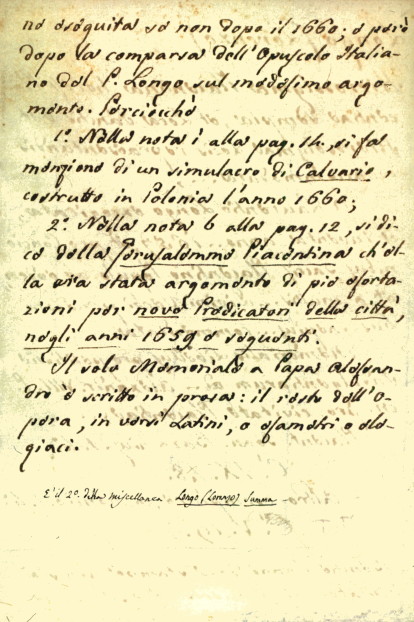 no eseguita se non dopo il 1660; e però
dopo la comparsa dell'Opuscolo Italia-
no del P. Longo sul medesimo argo-
mento. Perciocchè
1.° Nella nota i alla pag. 14., si fa
menzione di un simulacro di Calvario,
costrutto in Polonia l'anno 1660;
2.° Nella nota 6 alla pag. 12, si di-
ce della Jerusalemme Piacentina ch'el-
la era stata argomento di pie esorta-
zioni per nove Predicatori della città,
negli anni 1659 e seguenti.
Il solo Memoriale a Papa Alessan-
dro è scritto in prosa: il resto dell'O-
pera, in versi Latini, o esametri o ele-
giaci.
E' il 2.° della miscellanea Longo (Lorenzo) Summa